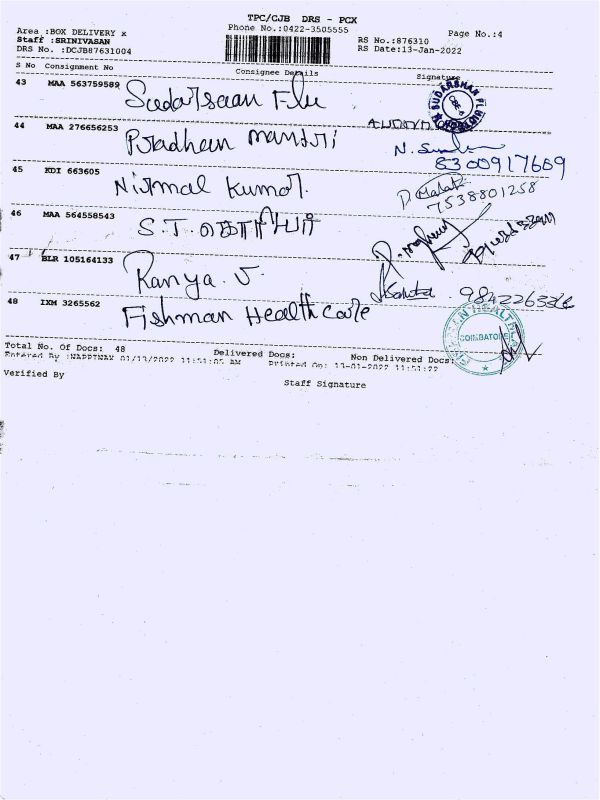 TPC/CJB DRS - PCX
Area :BOX DELIVERY x
Phone No.:0422-3505555
Page No.:4
Staff :SRINIVASAN
RS No.:876310
DRS No. :DCJB87631004
RS Date:13-Jan-2022
S No Consignment No Consignee Details Signature
43 MAA 563759589 Sudarsaan Flu
SUDARSHAN FL
44 MAA 276656253 Pradhan mantri
N.
8300917609
45 KDI 663605 Nirmal Kumar.
D. Malar
7538801258
46 MAA 564558543 S.T.
47 BLR 105164133 Ranya. V
48 IXM 3265562 Fishman Healthcare
COIMBATORE
Total No. Of Docs: 48 Delivered Docs: Non Delivered Docs:
Entered By :NAPPINAN 01/13/2022 11:51:05 AM Printed On: 13-01-2022 11:51:22
Verified By
Staff Signature